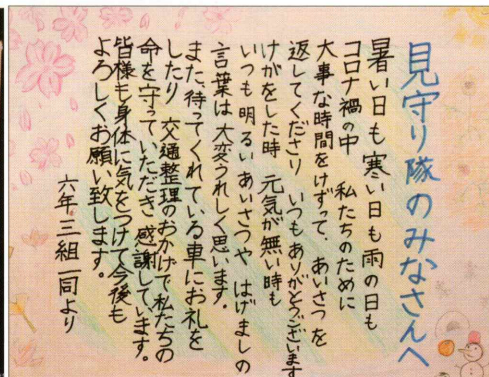 見守り隊のみなさんへ
暑い日も寒い日も雨の日も
コロナ禍の中 私たちのために
大事な時間をけずって、あいさつを
返してくださり いつもありがとうございます
けがをした時 元気が無い時も
いつも明るいあいさつや はげましの
言葉は大変うれしく思います。
また、待ってくれている車にお礼を
したり 交通整理のおかげで私たちの
命を守っていただき 感謝しています。
皆様も身体に気をつけて今後も
よろしくお願い致します。
六年三組一同より